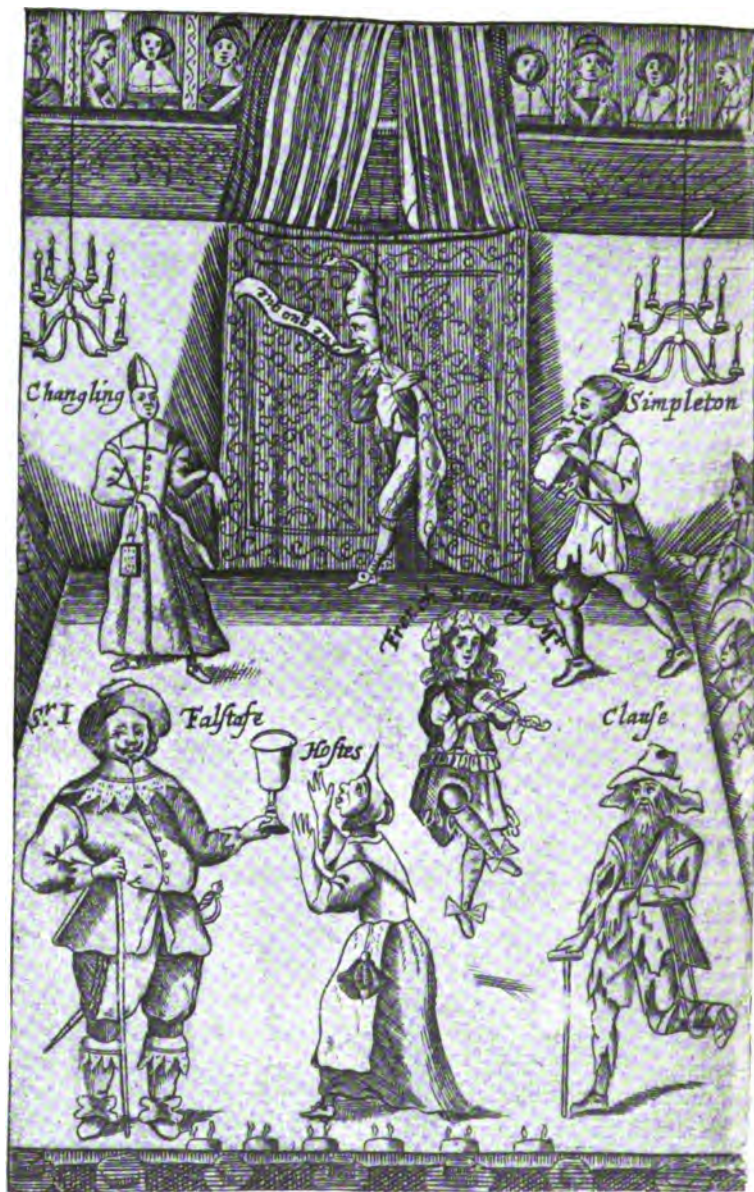 Tu quo que
Changling
Simpleton
French Dancing Mr.
Sr. I Falſtafe
Hoſtes
Clauſe